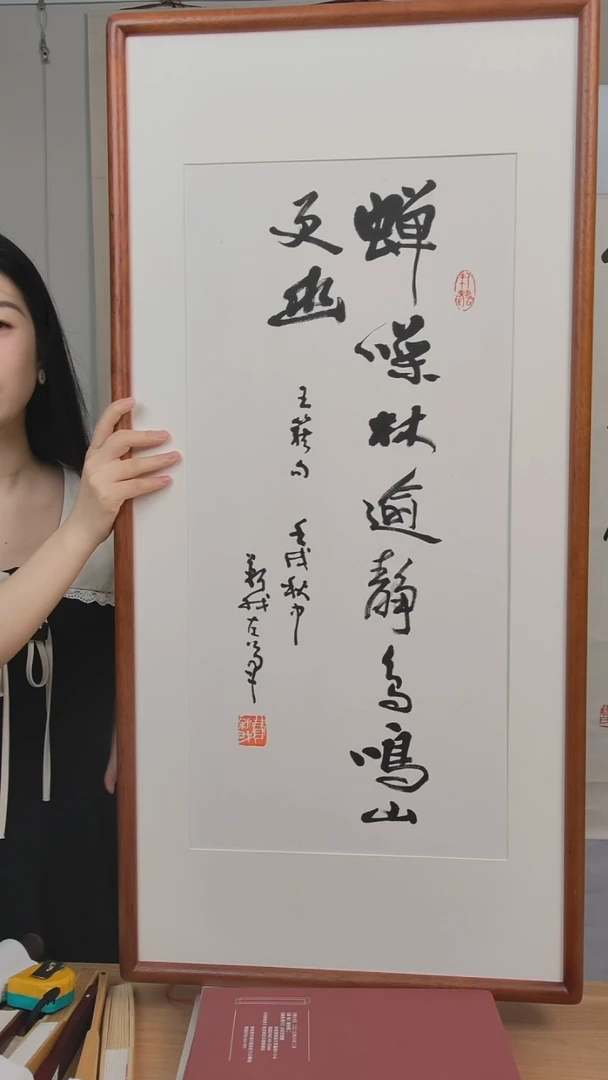 蝉噪林逾静鸟鸣山
更幽
王籍句 壬戌秋中
新我左笔